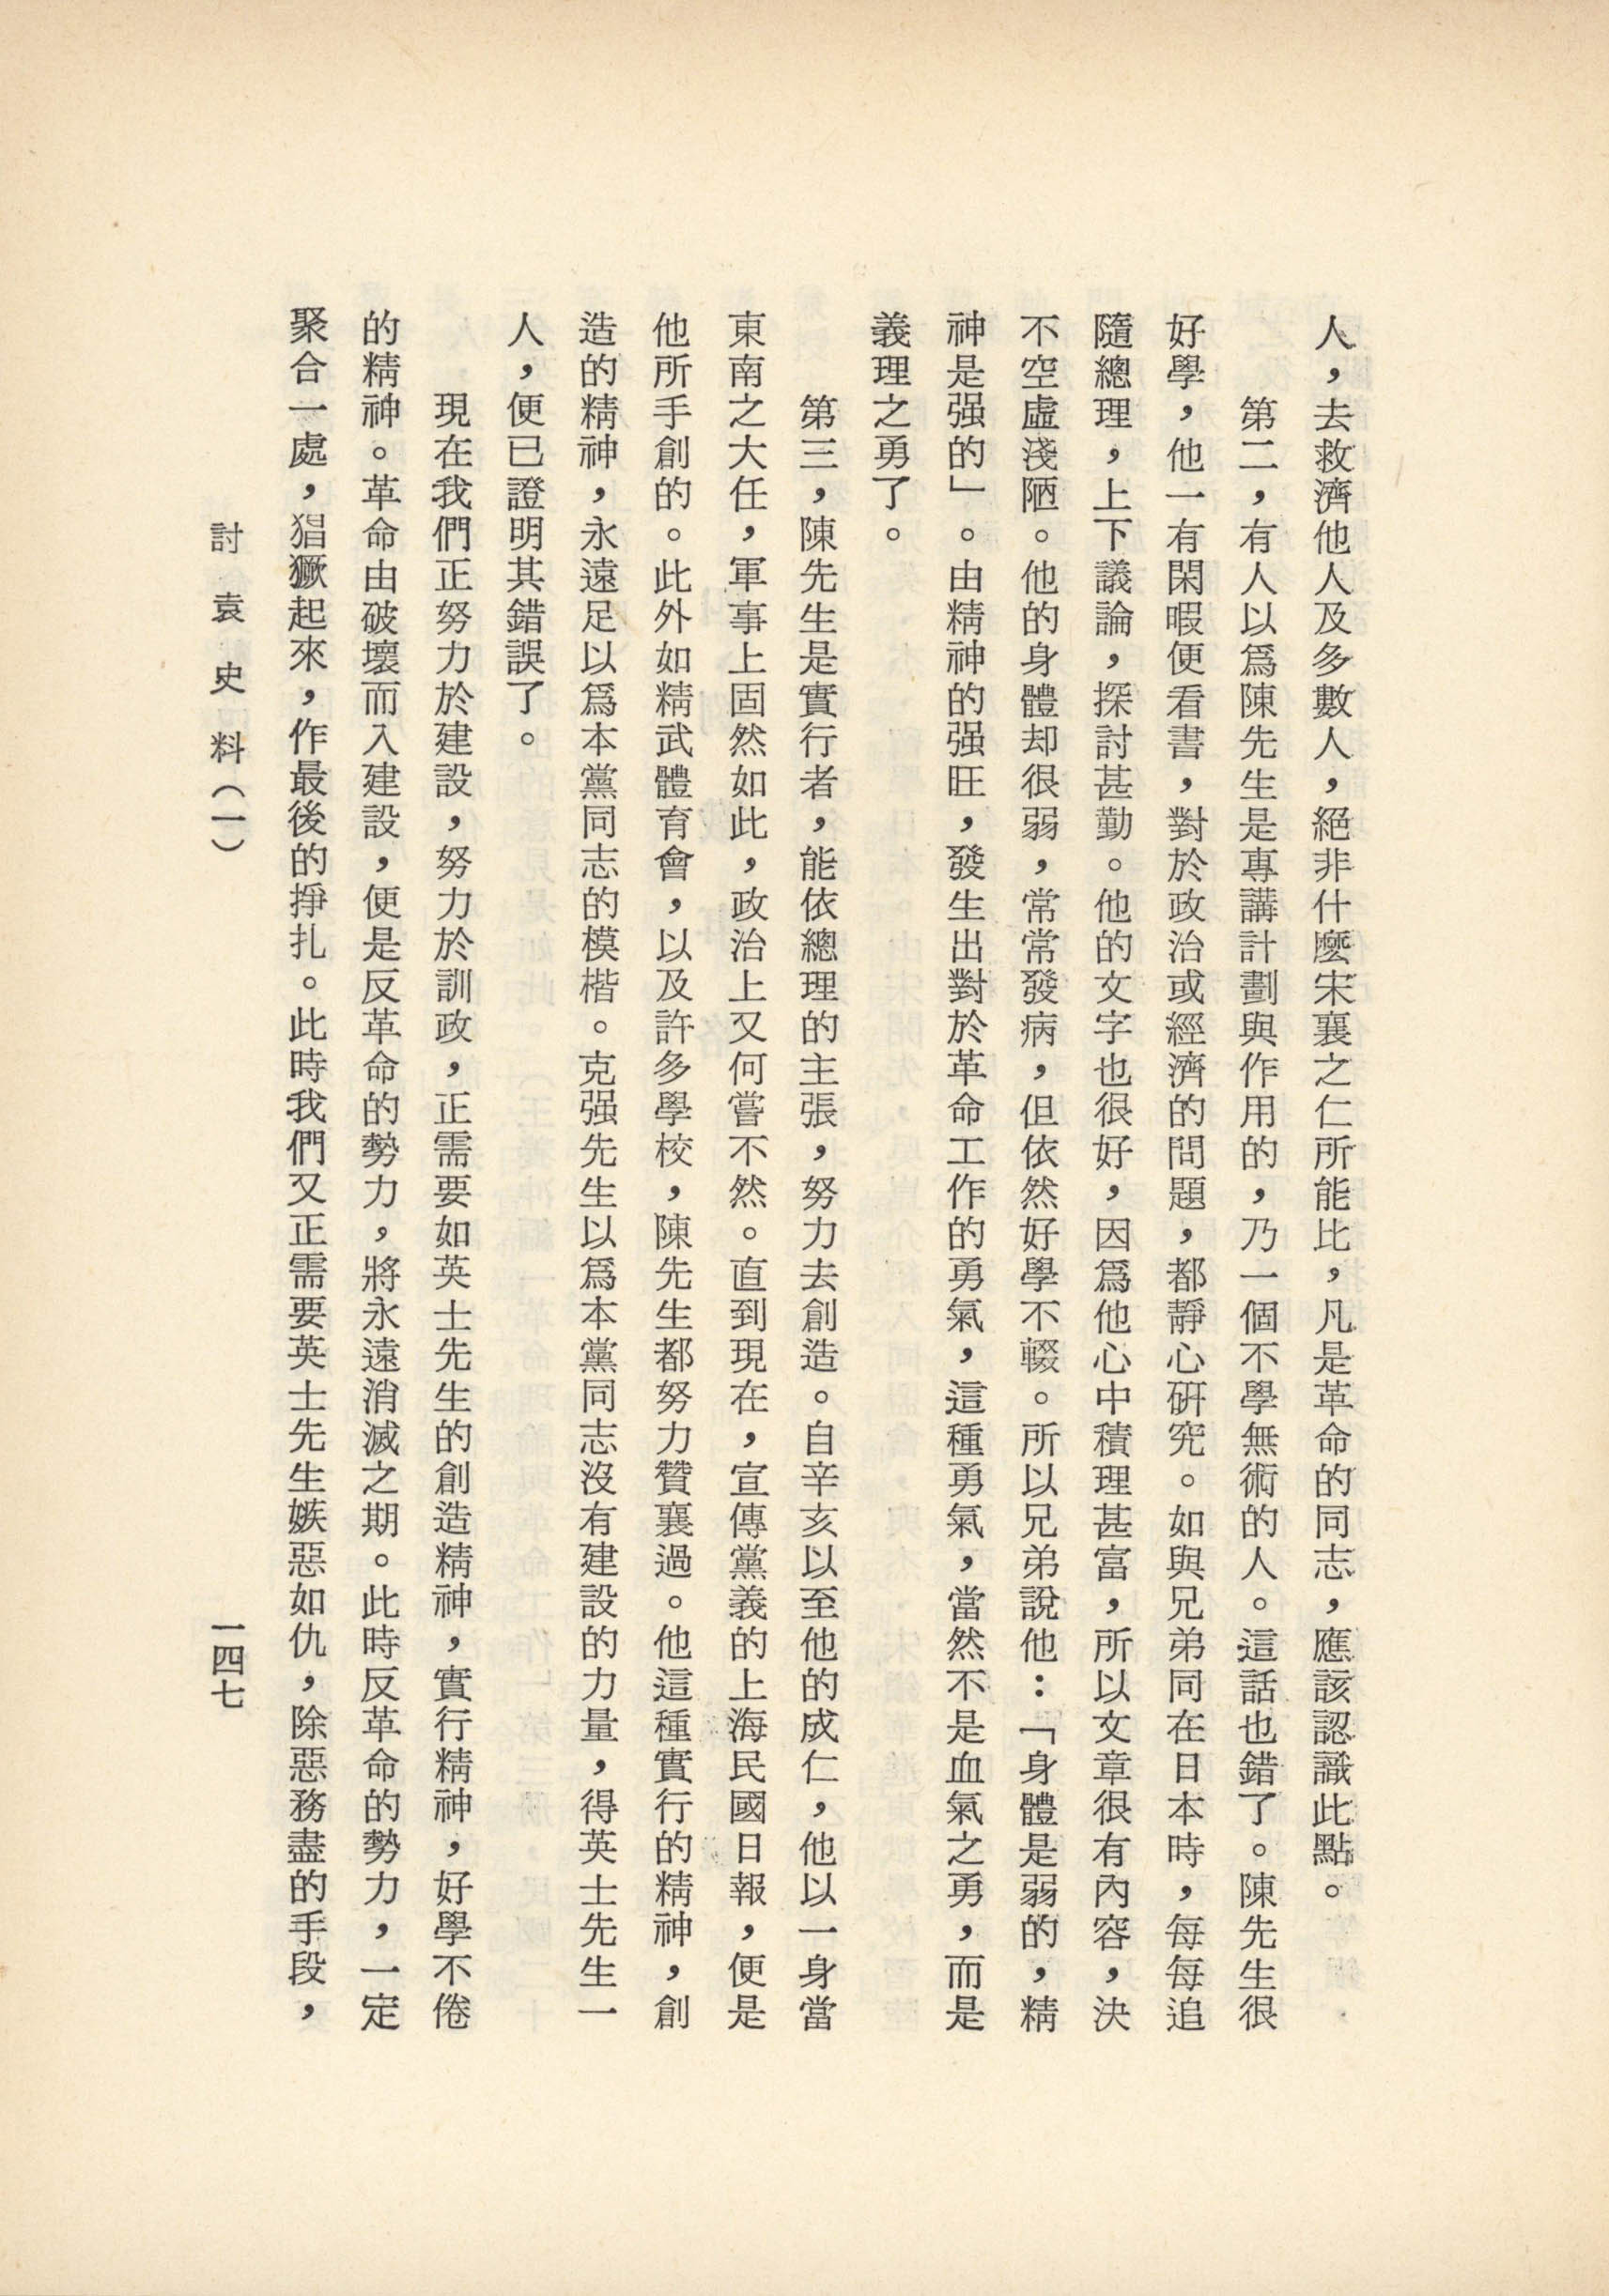 人，去救濟他人及多數人，絕非什麼宋襄之仁所能比，凡是革命的同志，應該認識此點。
第二，有人以爲陳先生是專講計劃與作用的，乃一個不學無術的人。這話也錯了。陳先生很
好學，他一有閑暇便看書，對於政治或經濟的問題，都靜心研究。如與兄弟同在日本時，每每追
隨總理，上下議論，探討甚勤。他的文字也很好，因爲他心中積理甚富，所以文章很有內容，決
不空虛淺陋。他的身體却很弱，常常發病，但依然好學不輟。所以兄弟說他：「身體是弱的，精
神是强的」。由精神的强旺，發生出對於革命工作的勇氣，這種勇氣，當然不是血氣之勇，而是
義理之勇了。
第三，陳先生是實行者，能依總理的主張，努力去創造。自辛亥以至他的成仁，他以一身當
東南之大任，軍事上固然如此，政治上又何嘗不然。直到現在，宣傳黨義的上海民國日報，便是
他所手創的。此外如精武體育會，以及許多學校，陳先生都努力贊襄過。他這種實行的精神，創
造的精神，永遠足以爲本黨同志的模楷。克强先生以爲本黨同志沒有建設的力量，得英士先生一
人，便已證明其錯誤了。
現在我們正努力於建設，努力於訓政，正需要如英士先生的創造精神，實行精神，好學不倦
的精神。革命由破壞而入建設，便是反革命的勢力，將永遠消滅之期。此時反革命的勢力，一定
聚合一處，猖獗起來，作最後的掙扎。此時我們又正需要英士先生嫉惡如仇，除惡務盡的手段，
討袁史料（一）
一四七